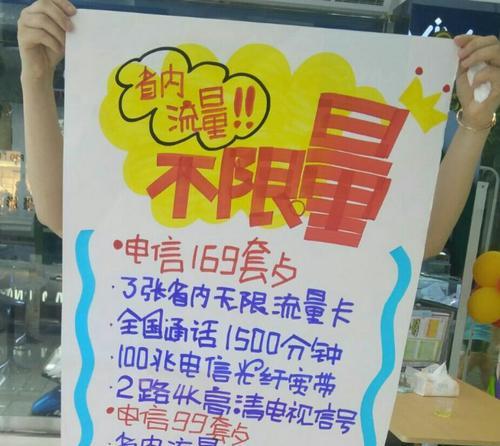 省内
流量!!
不限量
·电信169套占
·3张省内无限流量卡
·全国通话1500分钟
·100兆电信光纤宽带
·2路4K高清电视信号
·电信99套占
·省内流量